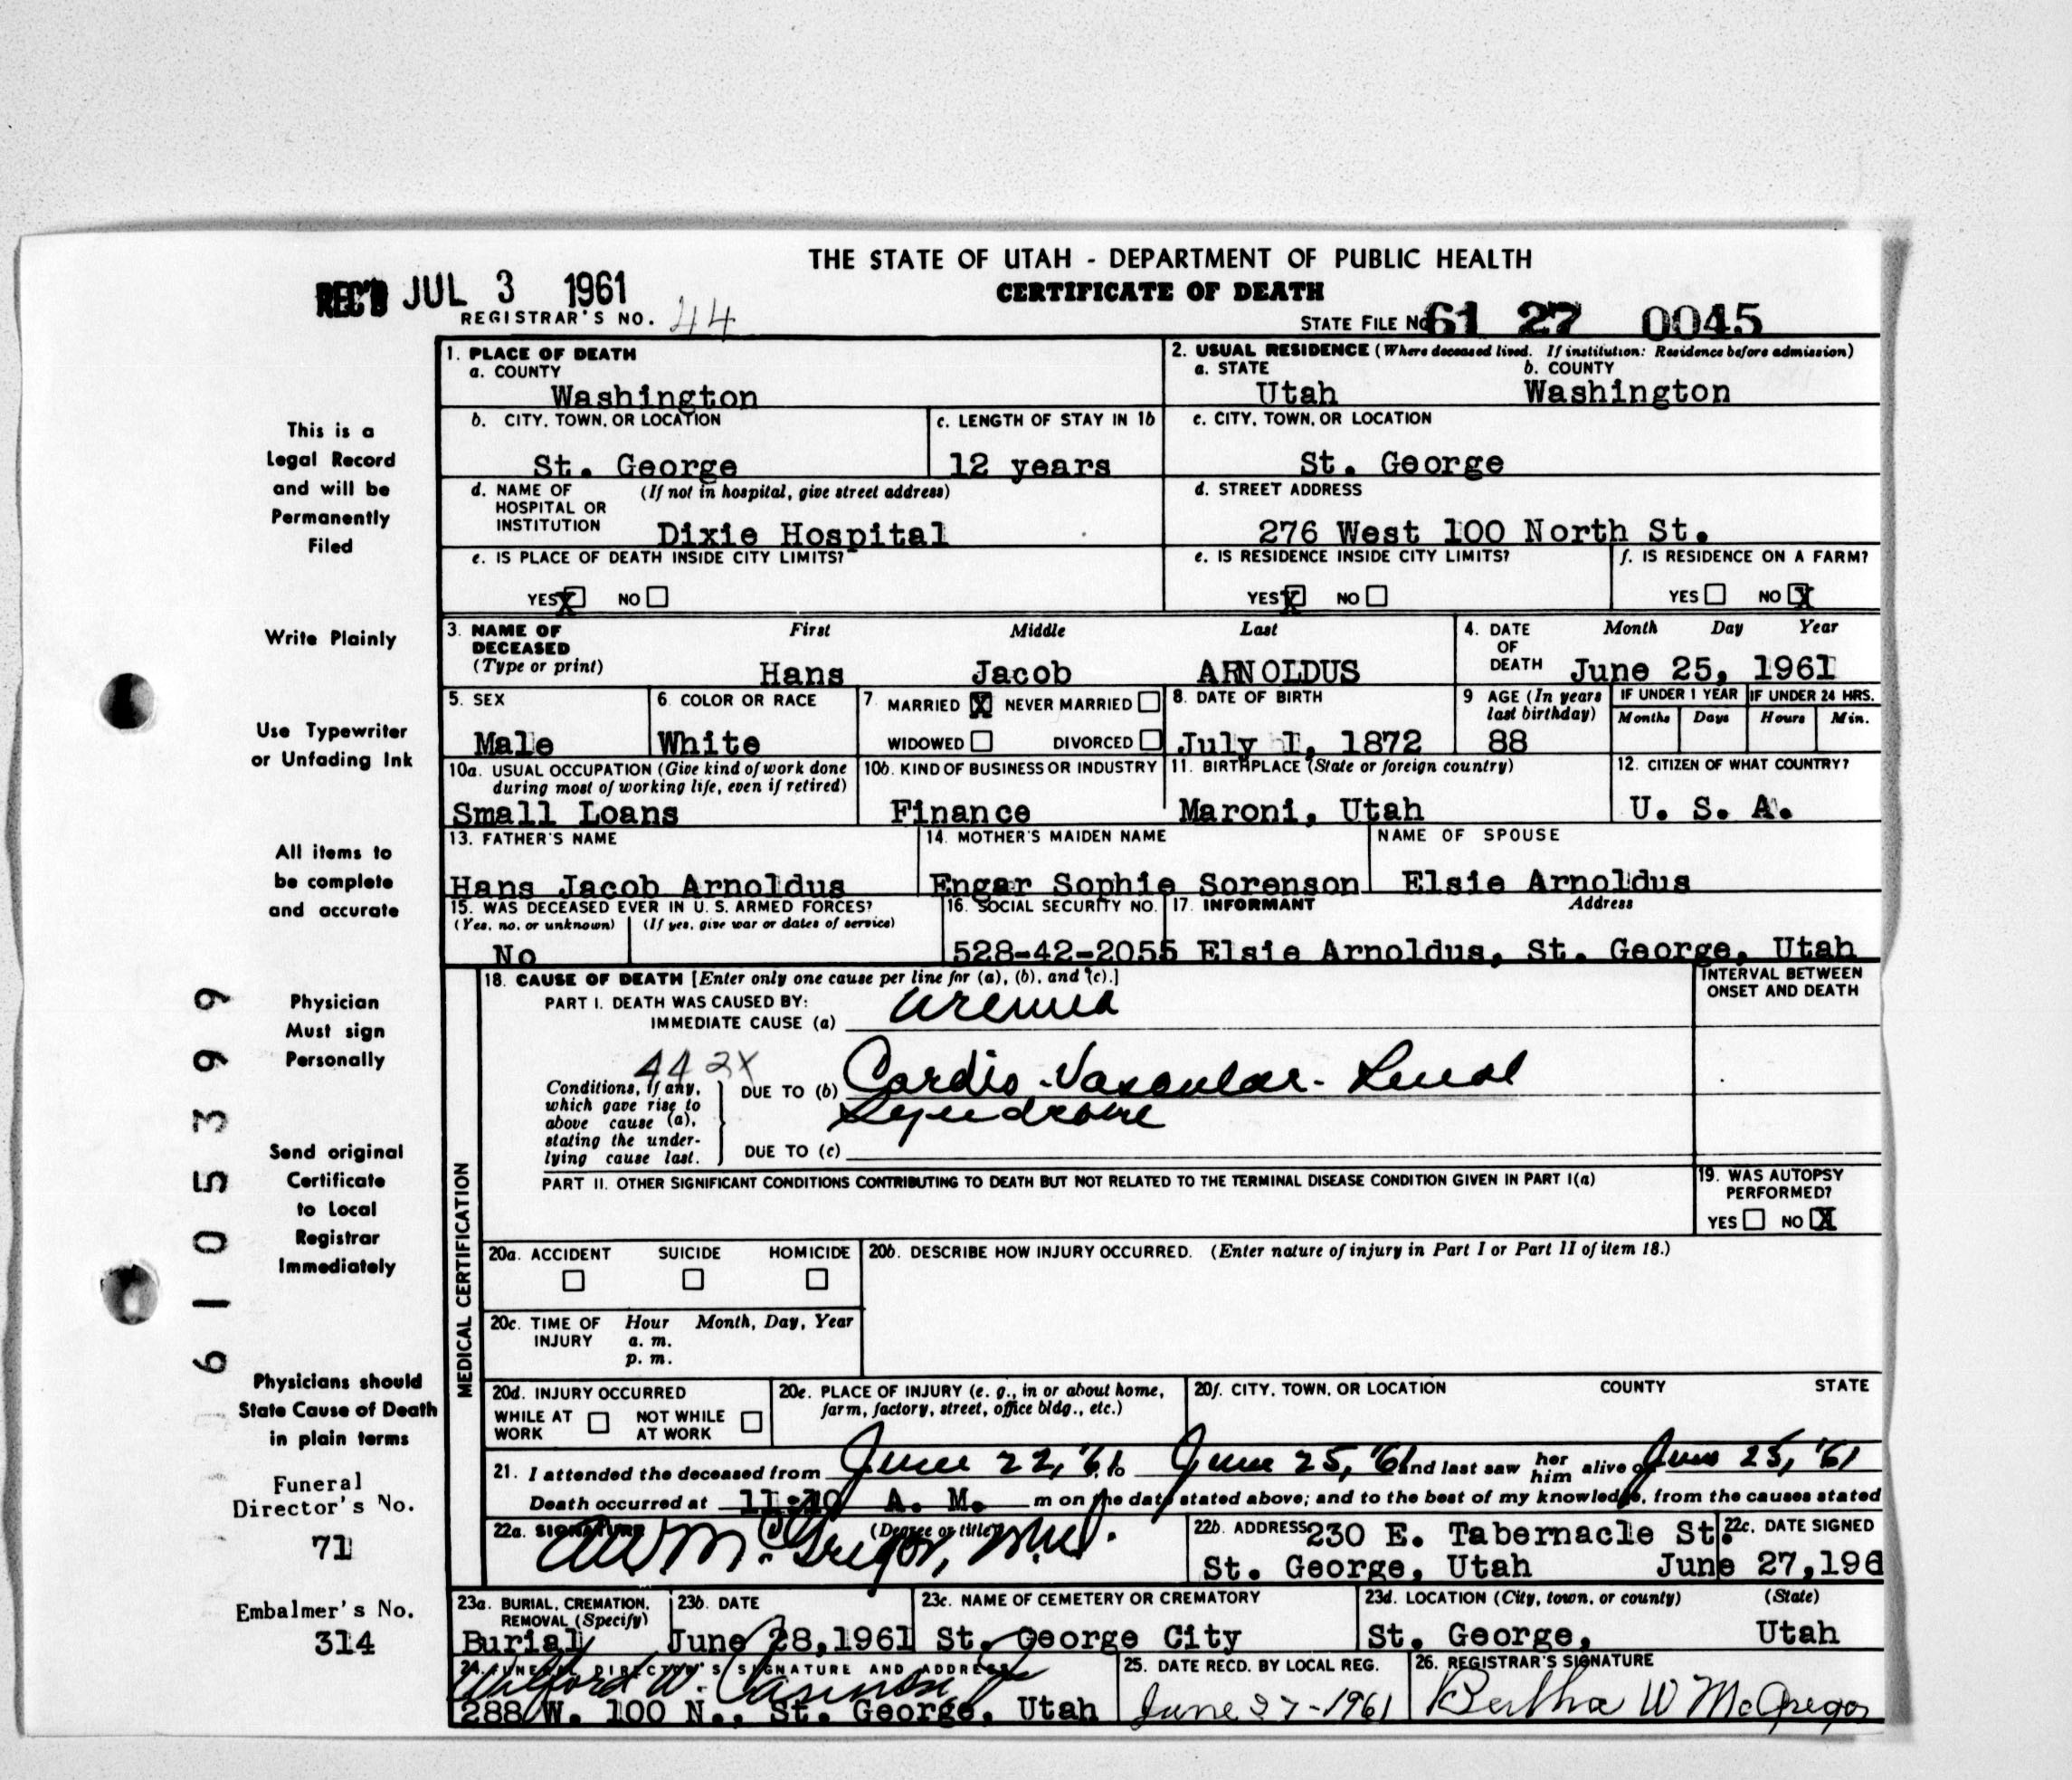 THE STATE OF UTAH - DEPARTMENT OF PUBLIC HEALTH
CERTIFICATE OF DEATH
REC'D JUL 3 1961
REGISTRAR'S NO. 44
STATE FILE No 61 27 0045
1. PLACE OF DEATH
a. COUNTY
Washington
2. USUAL RESIDENCE (Where deceased lived. If institution: Residence before admission)
a. STATE b. COUNTY
Utah Washington
b. CITY, TOWN, OR LOCATION
St. George
c. LENGTH OF STAY IN 1b
12 years
c. CITY, TOWN, OR LOCATION
St. George
d. NAME OF (If not in hospital, give street address)
HOSPITAL OR
INSTITUTION Dixie Hospital
d. STREET ADDRESS
276 West 100 North St.
e. IS PLACE OF DEATH INSIDE CITY LIMITS?
YES X NO
e. IS RESIDENCE INSIDE CITY LIMITS?
YES X NO
f. IS RESIDENCE ON A FARM?
YES NO X
3. NAME OF First Middle Last
DECEASED
(Type or print) Hans Jacob ARNOLDUS
4. DATE Month Day Year
OF
DEATH June 25, 1961
5. SEX
Male
6. COLOR OR RACE
White
7. MARRIED X NEVER MARRIED
WIDOWED DIVORCED
8. DATE OF BIRTH
July 1, 1872
9 AGE (In years
last birthday)
88
IF UNDER 1 YEAR IF UNDER 24 HRS.
Months Days Hours Min.
10a. USUAL OCCUPATION (Give kind of work done
during most of working life, even if retired)
Small Loans
10b. KIND OF BUSINESS OR INDUSTRY
Finance
11. BIRTHPLACE (State or foreign country)
Maroni, Utah
12. CITIZEN OF WHAT COUNTRY?
U. S. A.
13. FATHER'S NAME
Hans Jacob Arnoldus
14. MOTHER'S MAIDEN NAME
Engar Sophie Sorenson
NAME OF SPOUSE
Elsie Arnoldus
15. WAS DECEASED EVER IN U. S. ARMED FORCES?
(Yes, no, or unknown) (If yes, give war or dates of service)
No
16. SOCIAL SECURITY NO.
528-42-2055
17. INFORMANT Address
Elsie Arnoldus, St. George, Utah
MEDICAL CERTIFICATION
18. CAUSE OF DEATH [Enter only one cause per line for (a), (b), and (c).]
PART I. DEATH WAS CAUSED BY:
IMMEDIATE CAUSE (a) Uremia
INTERVAL BETWEEN
ONSET AND DEATH
442X
Conditions, if any,
which gave rise to
above cause (a),
stating the under-
lying cause last.
DUE TO (b) Cardio-Vascular-Renal
Syndrome
DUE TO (c)
PART II. OTHER SIGNIFICANT CONDITIONS CONTRIBUTING TO DEATH BUT NOT RELATED TO THE TERMINAL DISEASE CONDITION GIVEN IN PART I(a)
19. WAS AUTOPSY
PERFORMED?
YES NO X
20a. ACCIDENT SUICIDE HOMICIDE
20b. DESCRIBE HOW INJURY OCCURRED. (Enter nature of injury in Part I or Part II of item 18.)
20c. TIME OF Hour Month, Day, Year
INJURY a. m.
p. m.
20d. INJURY OCCURRED
WHILE AT NOT WHILE
WORK AT WORK
20e. PLACE OF INJURY (e. g., in or about home,
farm, factory, street, office bldg., etc.)
20f. CITY, TOWN, OR LOCATION COUNTY STATE
21. I attended the deceased from June 22, '61 to June 25, '61 and last saw her him alive on June 25, '61
Death occurred at 11:10 A. M. m on the date stated above; and to the best of my knowledge, from the causes stated
22a. SIGNATURE (Degree or title)
AW McGregor, M.D.
22b. ADDRESS 230 E. Tabernacle St.
St. George, Utah
22c. DATE SIGNED
June 27,196
23a. BURIAL, CREMATION,
REMOVAL (Specify)
Burial
23b. DATE
June 28,1961
23c. NAME OF CEMETERY OR CREMATORY
St. George City
23d. LOCATION (City, town, or county) (State)
St. George, Utah
24. FUNERAL DIRECTOR'S SIGNATURE AND ADDRESS
Wilford W.
288 W. 100 N., St. George, Utah
25. DATE RECD. BY LOCAL REG.
June 27-1961
26. REGISTRAR'S SIGNATURE
Bertha W McGregor
This is a
Legal Record
and will be
Permanently
Filed
Write Plainly
Use Typewriter
or Unfading Ink
All items to
be complete
and accurate
Physician
Must sign
Personally
Send original
Certificate
to Local
Registrar
Immediately
Physicians should
State Cause of Death
in plain terms
Funeral
Director's No.
71
Embalmer's No.
314
6105399